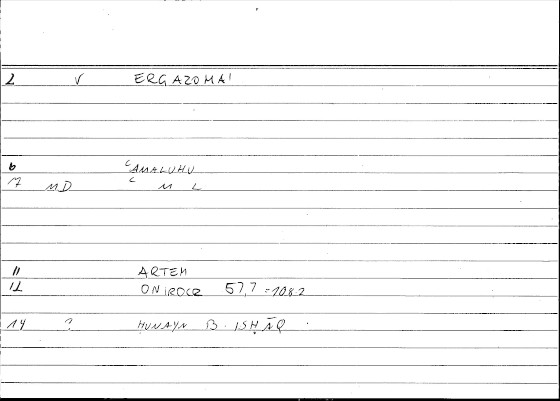 2 V ERGAZOMAI
6 ʿAMALUHU
7 MD ʿ M L
11 ARTEM
12 ONIROCR 57,7 = 108.2
14 ? ḤUNAYN B. ISḤĀQ